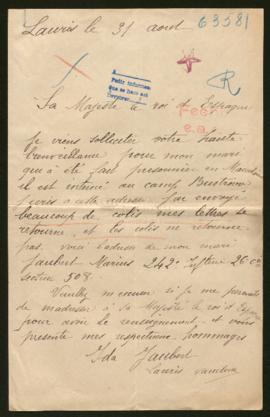 Lauris le 31 aout
63381
A.
Pedir informes
R
Sa Majesté le roi d'Espagne
Feer
e.a.
Je viens solliciter votre haute
bienveillance pour mon mari
qui a été fait prisonnier en
il est interné au camp
a cette adresse j'ai envoyé
beaucoup de colis mes lettres se
retourne, et les colis ne retourne
pas. voici l'adresse de mon mari
Jaubert Marius 242e 26 Cie
secteur 508.
Veuillez m'excuser si je me permets
de m'adresser à Sa Majesté le roi d'Espagne
pour avoir le renseignement, et vous
présente mes respectueux hommages
Ida Jaubert
Lauris Vaucluse